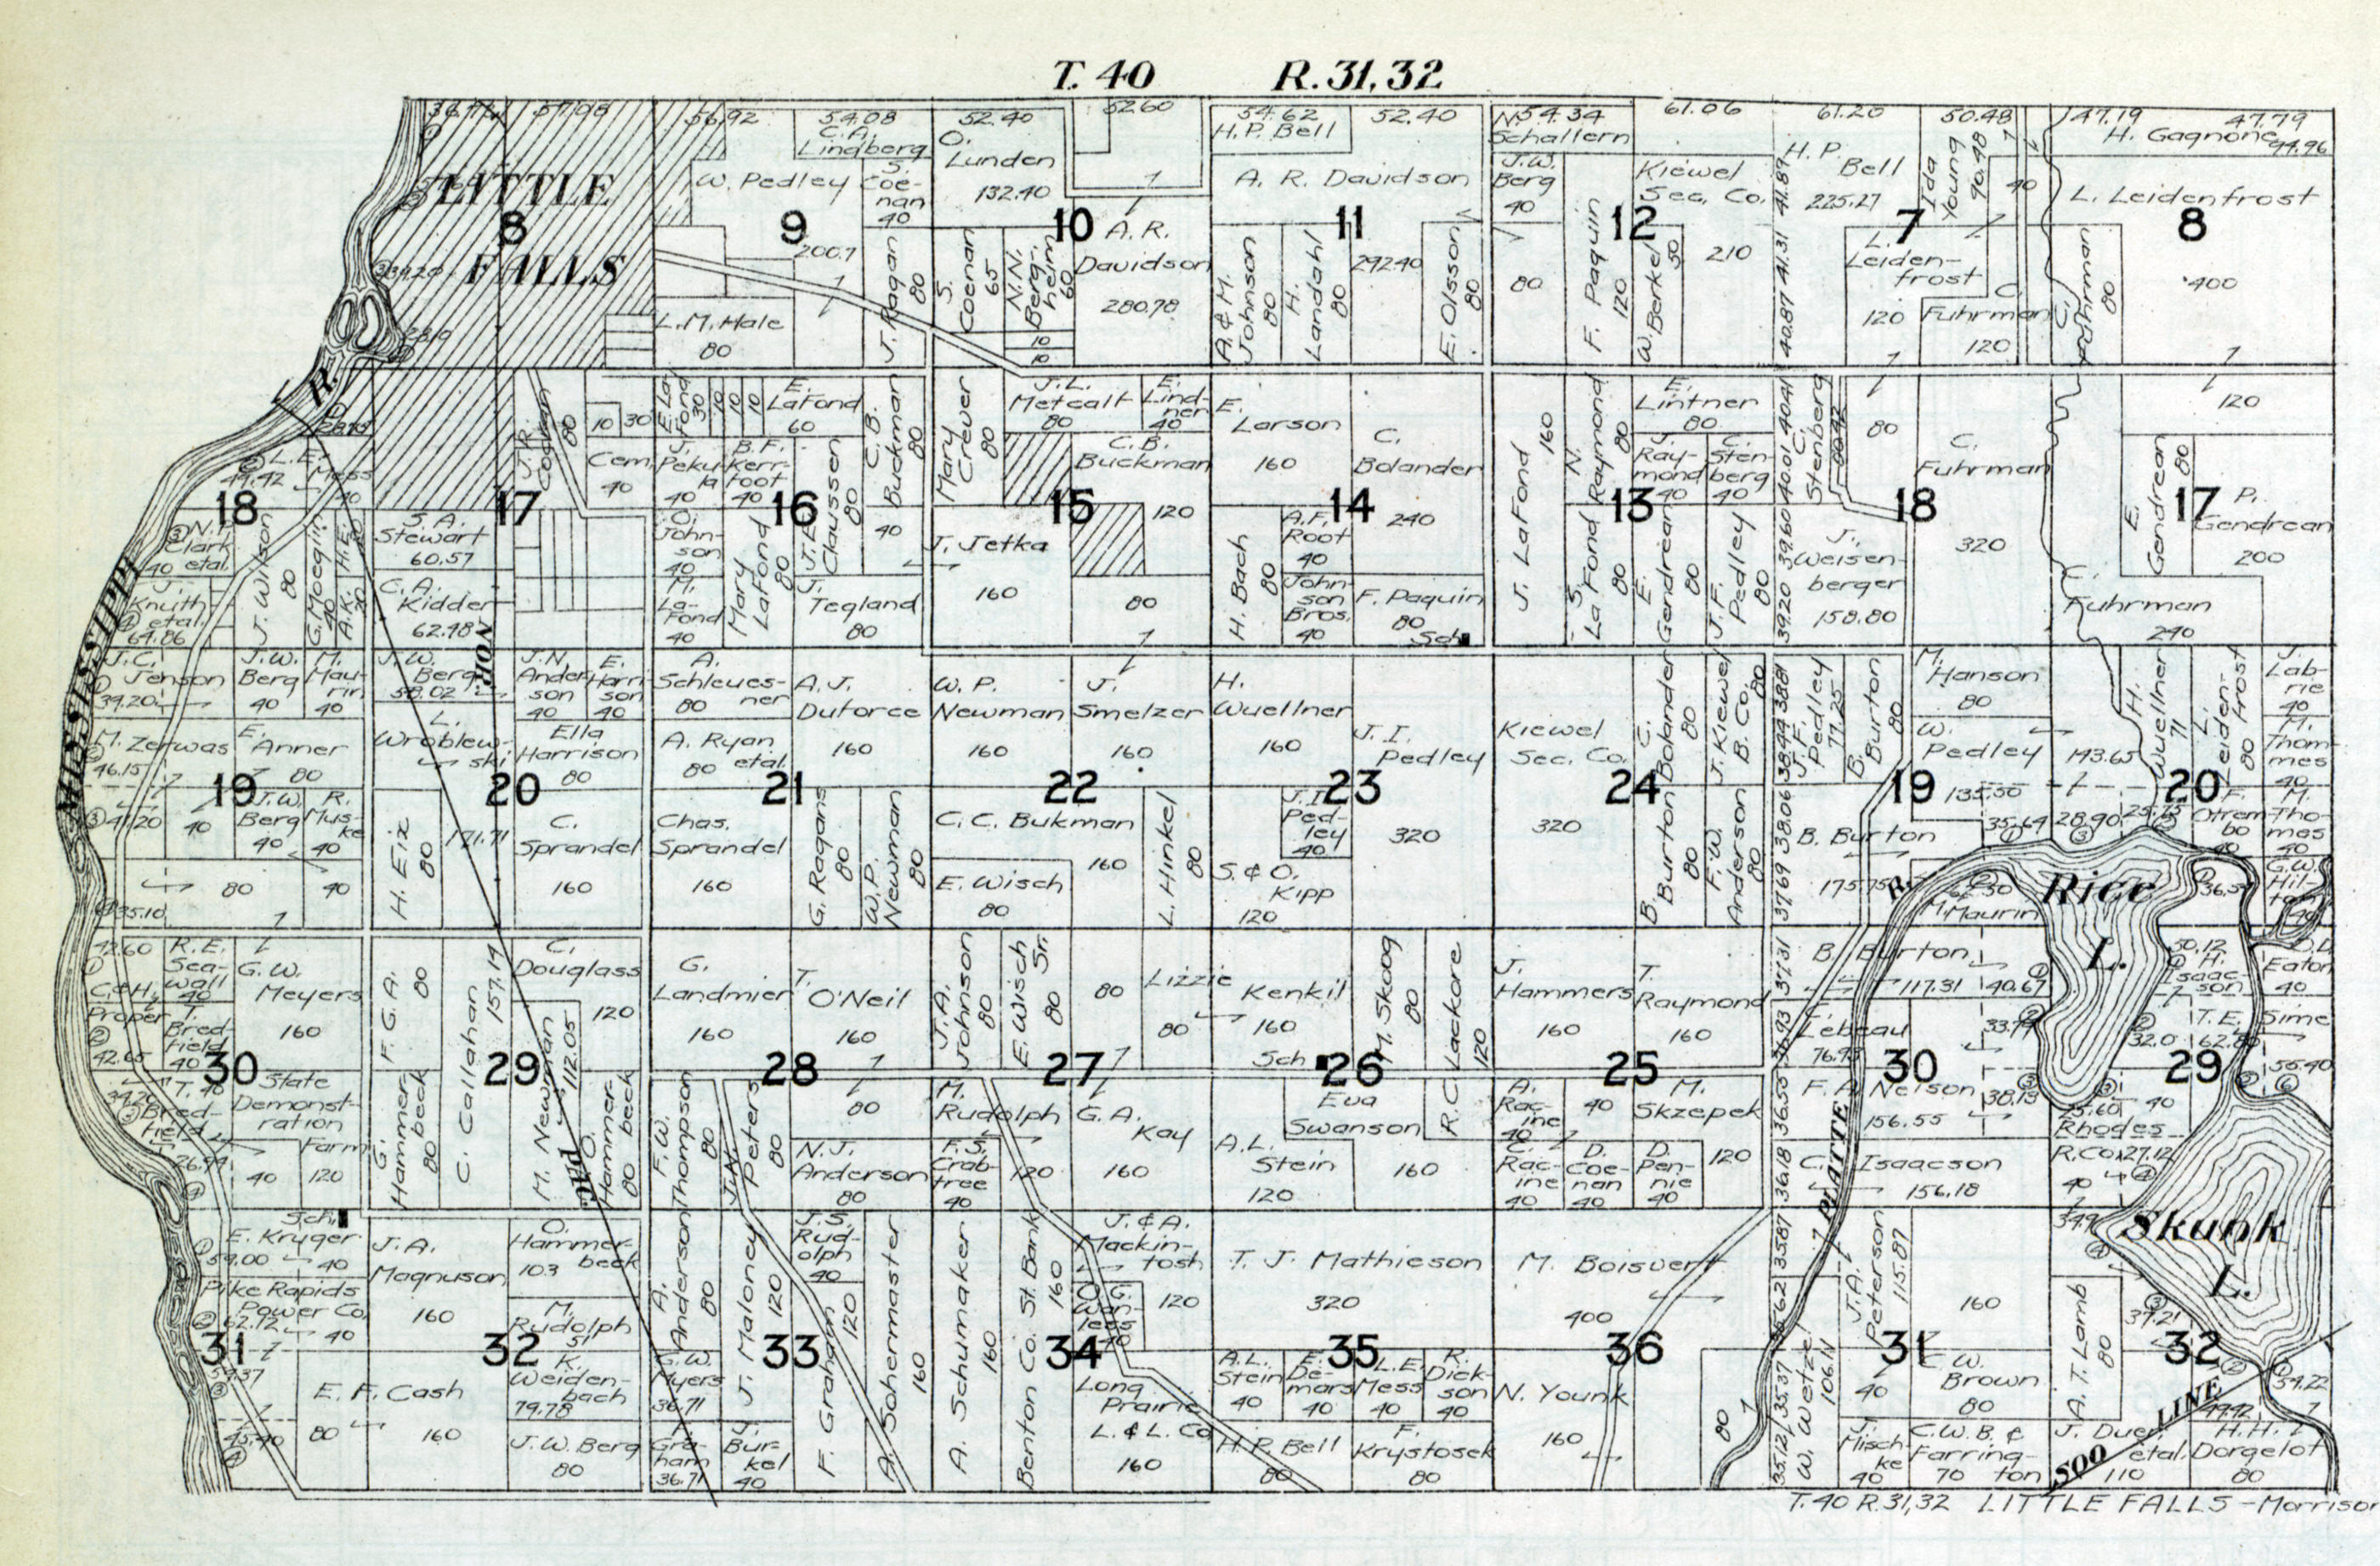 T. 40 R. 31, 32
54.08
52.40
52.60
54.62
52.40
54.34
61.06
61.20
50.48
47.19
47.79
56.92
C. A.
Lindberg
O.
Lunden
132.40
H. P. Bell
N.
Schallern
H. P.
Bell
225.27
Ida
Young
90.48
H. Gagnone
94.96
LITTLE
FALLS
8
W. Pedley
200.7
9
S.
Coe-
nan
40
10
A. R.
Davidson
280.78
A. R. Davidson
11
292.40
J. W.
Berg
40
80
Kiewel
Sec. Co.
12
210
7
40
L. Leidenfrost
8
400
L. M. Hale
80
J. Ragan
80
S.
Coenan
65
N. N.
Berg-
heim
60
10
10
A. & M.
Johnson
80
H.
Landahl
80
E. Olsson
80
F. Paquin
120
W. Berkel
30
41.89
41.31
40.87
L.
Leiden-
frost
120
C.
Fuhrman
120
C.
Fuhrman
80
R.
L. E.
Mess
40
18
J. R.
80
10
30
Cem.
40
17
E. La
Fond
30
10
10
10
E.
LaFond
60
B. F.
Kerr-
foot
40
16
J. E.
Claussen
80
C. B.
Buckman
80
40
Mary
Crewer
80
J. L.
Metcalf
80
E.
Lind-
ner
40
C. B.
Buckman
120
15
E.
Larson
160
C.
Bolander
240
14
J. LaFond
160
N.
Raymond
80
E.
Lintner
80
Ray-
mond
40
C.
Sten-
berg
40
13
40.41
40.01
39.60
39.20
C.
Stenberg
80
18
C.
Fuhrman
320
120
E.
Gendrean
80
17
P.
Gendrean
200
Clark
40 etal.
J.
Knuth
etal.
64.86
J. Wilson
80
G. Moegin
40
S. A.
Stewart
60.57
C. A.
Kidder
62.48
NOR.
O.
John-
son
40
M.
La-
Fond
40
Mary
LaFond
80
J.
Tegland
80
J. Jetka
160
80
H. Bach
80
A. F.
Root
40
John-
son
Bros.
40
F. Paquin
80
Sch.
S.
La Fond
80
E.
Gendrean
80
J. F.
Pedley
80
J.
Weisen-
berger
158.80
C.
Fuhrman
240
MISSISSIPPI
J. C.
Jenson
39.20
J. W.
Berg
40
M.
Mau-
rin
40
J. W.
Berg
58.02
J. N.
Ander-
son
40
E.
Harri-
son
40
A.
Schleues-
ner
80
A. J.
Duforce
160
W. P.
Newman
160
J.
Smelzer
160
H.
Wuellner
160
J. I.
Pedley
320
Kiewel
Sec. Co.
320
C.
Bolander
80
J. Kiewel
B. Co.
80
38.81
38.44
38.06
37.69
J. F.
Pedley
77.25
B.
Burton
80
M.
Hanson
80
W.
Pedley
135.50
143.65
H.
Wuellner
71
L.
Leiden-
frost
80
J.
Lab-
rie
40
M.
Thom-
mes
40
M. Zerwas
46.15
E.
Anner
80
19
L.
Wroblew-
ski
171.71
Ella
Harrison
80
20
A. Ryan
80 etal.
21
22
23
24
19
20
41.20
40
J. W.
Berg
40
R.
Mus-
ke
40
80
40
35.10
H. Eix
80
C.
Sprandel
160
Chas.
Sprandel
160
G. Ragans
80
W. P.
Newman
80
C. C. Bukman
160
E. Wisch
80
L. Hinkel
80
J. I.
Ped-
ley
40
S. & O.
Kipp
120
B.
Burton
80
F. W.
Anderson
80
B. Burton
175.75
35.64
28.90
M. Maurin
F.
Otrem-
bo
40
M.
Tho-
mes
40
G. W.
Hil-
ton
40
Rice
L.
42.60
R. E.
Sea-
wall
40
G. W.
Meyers
160
C. & H.
Proper
42.65
T.
Bred-
field
40
30
F. G. A.
80
C. Callahan
157.14
C.
Douglass
120
29
G.
Landmier
160
T.
O'Neil
160
28
J. A.
Johnson
80
E. Wisch
Sr.
80
80
Lizzie
80
Kenkil
160
27
Sch.
M. Skoog
80
26
R. C. Lackore
120
J.
Hammers
160
T.
Raymond
160
25
37.31
36.93
36.55
36.18
B. Burton
117.31
40.67
E.
Lebeau
76.93
30
30.12
H.
Isaac-
son
29
D. L.
Eaton
40
T. E. Sime
56.40
T.
Bred-
field
State
Demonst-
ration
Farm
120
40
26.94
G.
Hammer-
beck
80
M. Newman
112.05
O.
Hammer-
beck
80
PAC.
F. W.
Thompson
80
J. N.
Peters
80
80
N. J.
Anderson
80
M.
Rudolph
120
F. S.
Crab-
tree
40
G. A.
Kay
160
Eva
Swanson
160
A. L.
Stein
120
A.
Rac-
ine
40
40
M.
Skzepek
120
C.
Rac-
ine
40
D.
Coe-
nan
40
D.
Pen-
nie
40
F. A. Nelson
156.55
38.13
C. Isaacson
156.18
PLATTE
R.
25.60
40
Rhodes
R. Co.
27.12
40
Skunk
L.
Sch.
E. Kruger
59.00
40
Pike Rapids
Power Co.
62.72
40
31
J. A.
Magnuson
160
O.
Hammer-
beck
103
M.
Rudolph
51
32
K.
Weiden-
bach
79.78
J. W. Berg
80
E. F. Cash
80
160
45.40
A.
Anderson
80
G. W.
Myers
36.71
Gra-
ham
36.71
J. Maloney
120
J.
Bur-
kel
40
J. S.
Rud-
olph
40
33
F. Graham
120
A. Sohermaster
160
A. Schumaker
160
Benton Co. St. Bank
160
34
J. & A.
Mackin-
tosh
120
O. G.
Wan-
less
40
Long
Prairie
L. & L. Co.
160
T. J. Mathieson
320
35
A. L.
Stein
40
E.
De-
mars
40
L. E.
Mess
40
R.
Dick-
son
40
H. P. Bell
80
F.
Krystosek
80
M. Boisvert
400
36
N. Younk
160
80
35.87
35.62
35.37
35.12
W. Wetzel
106.11
J. A.
Peterson
115.87
160
31
40
C. W.
Brown
80
J.
Misch-
ke
40
C. W. B. &
Farring-
ton
70
A. T. Lamb
80
37.21
32
39.22
49.42
J. Duer,
etal.
110
H. H.
Dorgelot
80
SOO LINE
T. 40 R. 31, 32 LITTLE FALLS - Morrison